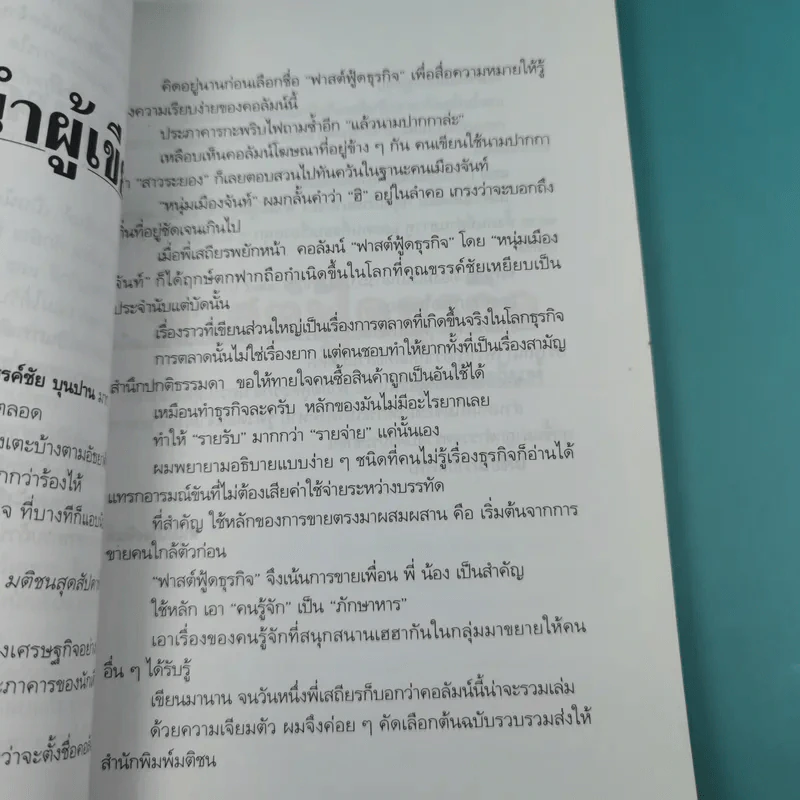 นำผู้เขี
รรค์ชัย บุนปาน
ตลอด
งเตะบ้างตามอัธยา
กกว่าร้องไห้
จ ที่บางทีก็แอบ
มติชนสุดสัปดา
งเศรษฐกิจอย่าง
ะภาคารของนัก
ว่าจะตั้งชื่อคอลั
คิดอยู่นานก่อนเลือกชื่อ “ฟาสต์ฟู้ดธุรกิจ” เพื่อสื่อความหมายให้รู้
งความเรียบง่ายของคอลัมน์นี้
ประภาคารกะพริบไฟถามซ้ำอีก “แล้วนามปากกาล่ะ”
เหลือบเห็นคอลัมน์โฆษณาที่อยู่ข้าง ๆ กัน คนเขียนใช้นามปากกา
า “สาวระยอง” ก็เลยตอบสวนไปทันควันในฐานะคนเมืองจันท์
“หนุ่มเมืองจันท์” ผมกลั้นคำว่า “ฮิ” อยู่ในลำคอ เกรงว่าจะบอกถึง
ถิ่นที่อยู่ชัดเจนเกินไป
เมื่อพี่เสถียรพยักหน้า คอลัมน์ “ฟาสต์ฟู้ดธุรกิจ” โดย “หนุ่มเมือง
จันท์” ก็ได้ฤกษ์ตกฟากถือกำเนิดขึ้นในโลกที่คุณขรรค์ชัยเหยียบเป็น
ประจำนับแต่บัดนั้น
เรื่องราวที่เขียนส่วนใหญ่เป็นเรื่องการตลาดที่เกิดขึ้นจริงในโลกธุรกิจ
การตลาดนั้นไม่ใช่เรื่องยาก แต่คนชอบทำให้ยากทั้งที่เป็นเรื่องสามัญ
สำนึกปกติธรรมดา ขอให้ทายใจคนซื้อสินค้าถูกเป็นอันใช้ได้
เหมือนทำธุรกิจละครับ หลักของมันไม่มีอะไรยากเลย
ทำให้ “รายรับ” มากกว่า “รายจ่าย” แค่นั้นเอง
ผมพยายามอธิบายแบบง่าย ๆ ชนิดที่คนไม่รู้เรื่องธุรกิจก็อ่านได้
แทรกอารมณ์ขันที่ไม่ต้องเสียค่าใช้จ่ายระหว่างบรรทัด
ที่สำคัญ ใช้หลักของการขายตรงมาผสมผสาน คือ เริ่มต้นจากการ
ขายคนใกล้ตัวก่อน
“ฟาสต์ฟู้ดธุรกิจ” จึงเน้นการขายเพื่อน พี่ น้อง เป็นสำคัญ
ใช้หลัก เอา “คนรู้จัก” เป็น “ภักษาหาร”
เอาเรื่องของคนรู้จักที่สนุกสนานเฮฮากันในกลุ่มมาขยายให้คน
อื่น ๆ ได้รับรู้
เขียนมานาน จนวันหนึ่งพี่เสถียรก็บอกว่าคอลัมน์นี้น่าจะรวมเล่ม
ด้วยความเจียมตัว ผมจึงค่อย ๆ คัดเลือกต้นฉบับรวบรวมส่งให้
สำนักพิมพ์มติชน